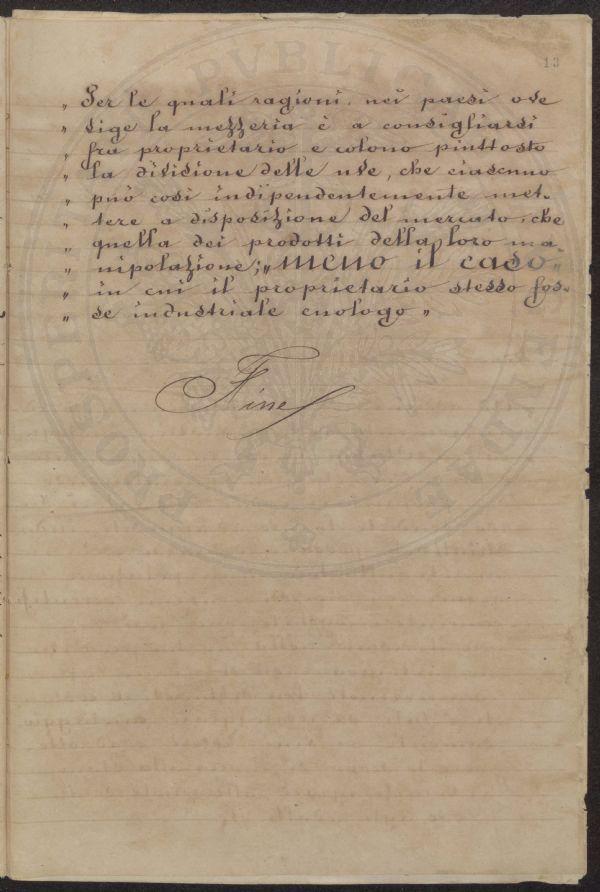 13
„ Per le quali ragioni, nei paesi ove
„ vige la mezzeria è a consigliarsi
„ fra proprietario e colono piuttosto
„ la divisione delle uve, che ciascuno
„ può così indipendentemente met-
„ tere a disposizione del mercato, che
„ quella dei prodotti della loro ma-
„ nipolazione; „ meno il caso „
„ in cui il proprietario stesso fos-
„ se industriale enologo „
Fine